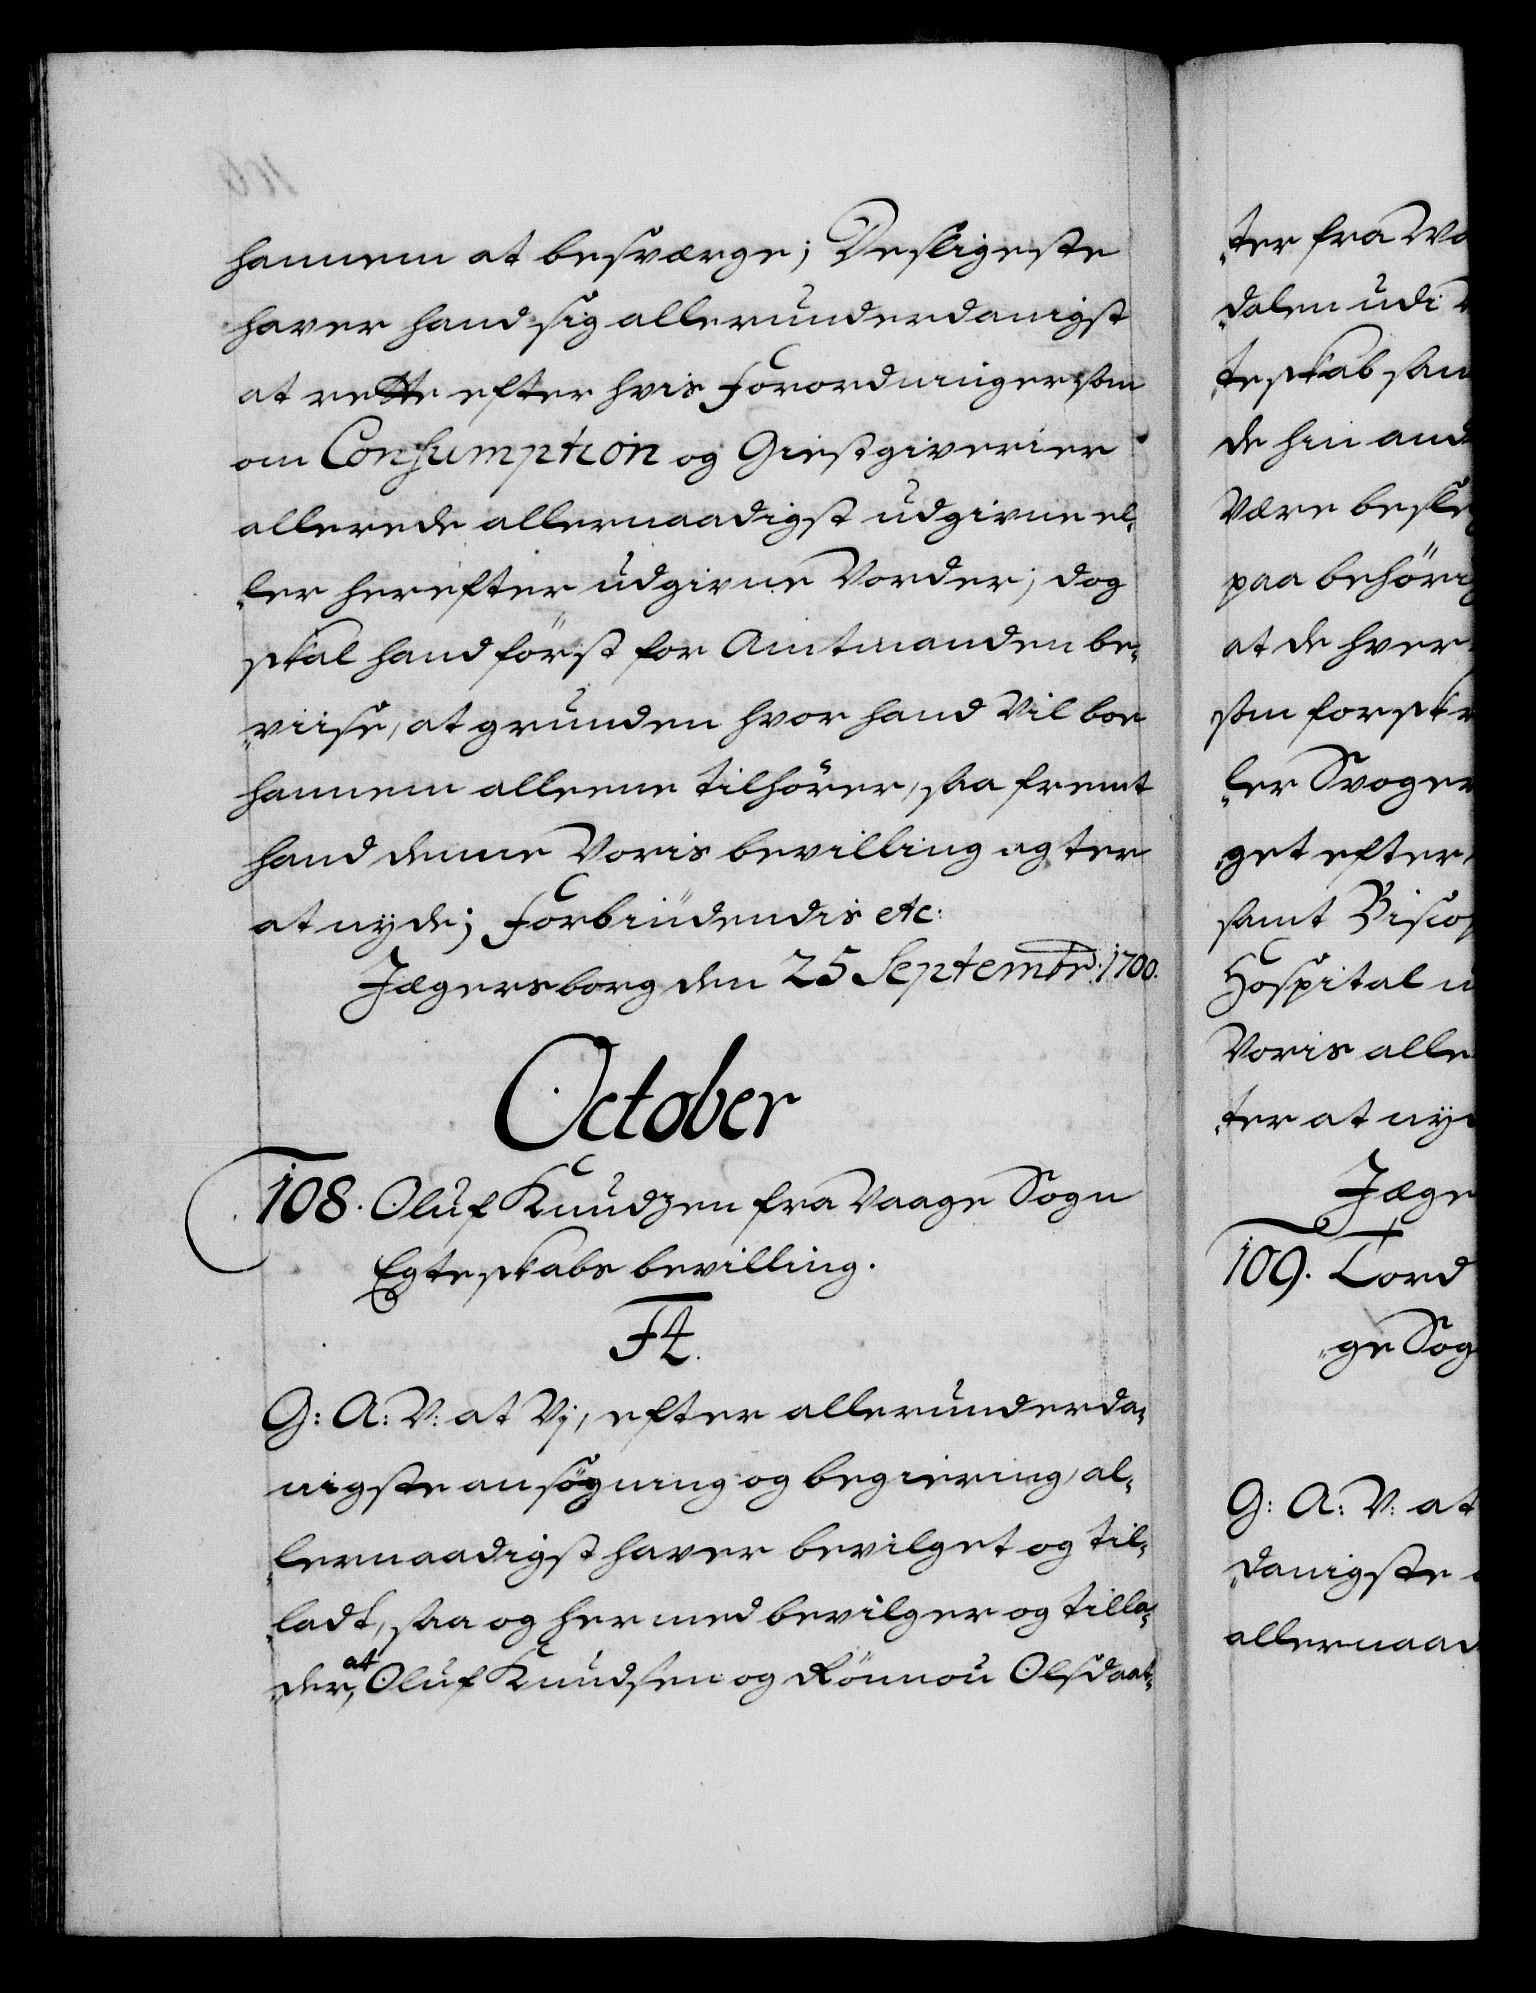 hannem at besværge; Desligeste
haver hand sig allerunderdanigst
at rette efter hvis Forordninger som
om Consumption og Giestgiverier
allerede allernaadigst udgivne el„
„ler herefter udgivne Vorder; dog
skal hand först for Amtmanden be„
„viise, at grunden hvor hand Vil boe
hannem alleene tilhörer, saa fremt
hand denne Voris bevilling agter
at nyde; Forbiudendis etc:
Jægersborg den 25 Septembr: 1700.
October
108. Oluf Knudzen fra Vaage Sogn
Egteskabs bevilling.
F4.
G: A: V: at Vj, efter allerunderda„
nigste ansögning og begiering, al„
„lernaadigst haver bevilget og til„
„ladt, saa og hermed bevilger og tilla„
„der, at Oluf Knudsen og Rönnou Olsdaat„
„ter fra Wa
„dalen udi
teskab sam
de hin and
Være besle
paa behöri
at de hver
som forskr
„ler Svoger
„get efter
samt Bisco
Hospital u
Voris alle
„ter at ny
Jæge
109. Tord
„ge Sog
G: A: V: at
„danigste
allernaad